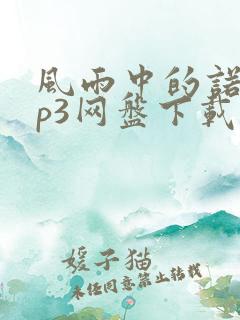 風雨中的諾
p3网盤下載
媛子猫
未经同意禁止转载